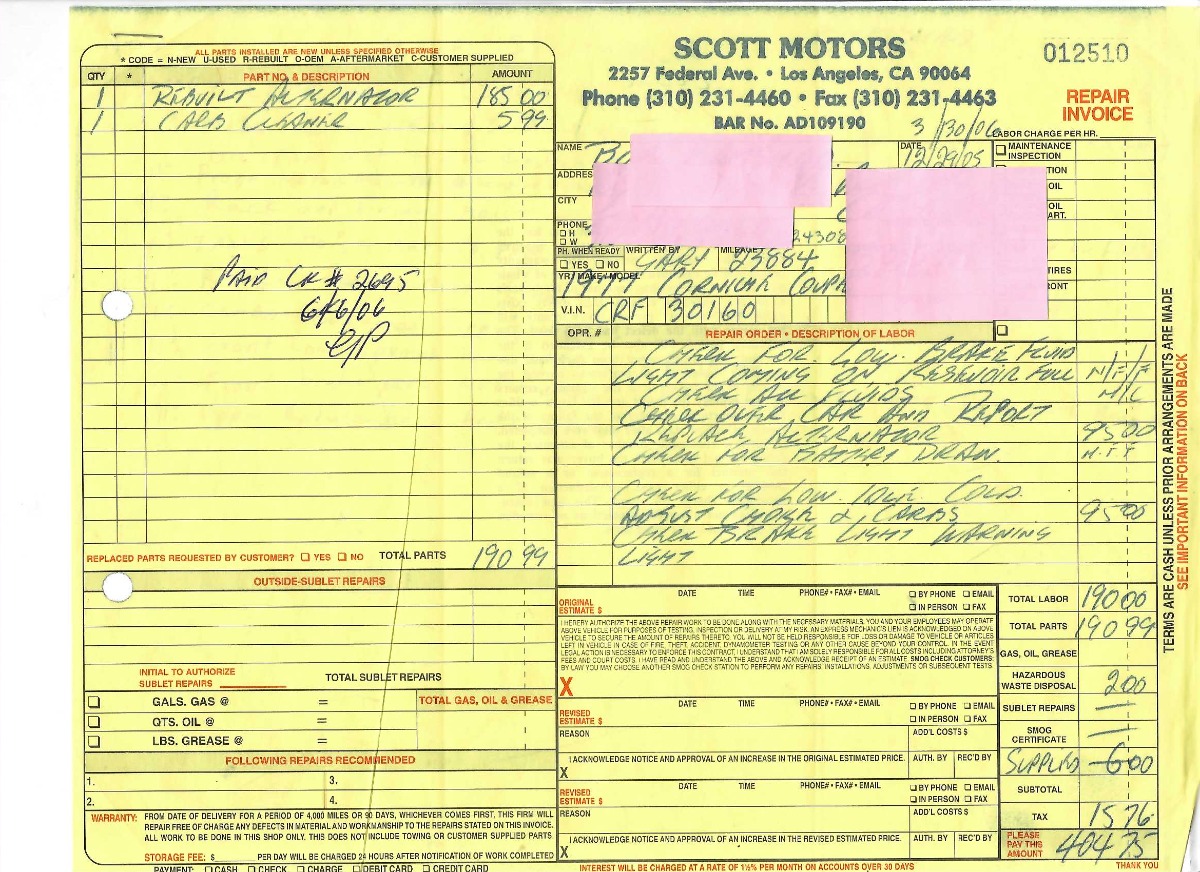 ALL PARTS INSTALLED ARE NEW UNLESS SPECIFIED OTHERWISE
* CODE = N-NEW U-USED R-REBUILT O-OEM A-AFTERMARKET C-CUSTOMER SUPPLIED
QTY * PART NO. & DESCRIPTION AMOUNT
1 REBUILT ALTERNATOR 185 00
1 CARB CLEANER 5 99
PAID CK # 2695
6/6/06
REPLACED PARTS REQUESTED BY CUSTOMER? YES NO TOTAL PARTS 190 99
OUTSIDE-SUBLET REPAIRS
INITIAL TO AUTHORIZE
SUBLET REPAIRS TOTAL SUBLET REPAIRS
GALS. GAS @ = TOTAL GAS, OIL & GREASE
QTS. OIL @ =
LBS. GREASE @ =
FOLLOWING REPAIRS RECOMMENDED
1. 3.
2. 4.
WARRANTY: FROM DATE OF DELIVERY FOR A PERIOD OF 4,000 MILES OR 90 DAYS, WHICHEVER COMES FIRST, THIS FIRM WILL
REPAIR FREE OF CHARGE ANY DEFECTS IN MATERIAL AND WORKMANSHIP TO THE REPAIRS STATED ON THIS INVOICE.
ALL WORK TO BE DONE IN THIS SHOP ONLY. THIS DOES NOT INCLUDE TOWING OR CUSTOMER SUPPLIED PARTS.
STORAGE FEE: $ PER DAY WILL BE CHARGED 24 HOURS AFTER NOTIFICATION OF WORK COMPLETED
PAYMENT: CASH CHECK CHARGE DEBIT CARD CREDIT CARD
SCOTT MOTORS
2257 Federal Ave. • Los Angeles, CA 90064
Phone (310) 231-4460 • Fax (310) 231-4463
BAR No. AD109190
012510
REPAIR
INVOICE
3/30/06
LABOR CHARGE PER HR.
NAME DATE 12/29/05
MAINTENANCE
INSPECTION
ADDRES
TION
OIL
CITY
OIL
ART.
PHONE
H
W 24308
PH. WHEN READY WRITTEN BY MILEAGE
YES NO GARY 23884
IRES
RONT
YR./MAKE/MODEL
1977 CORNICHE COUPE
V.I.N. CRF 30160
OPR. # REPAIR ORDER • DESCRIPTION OF LABOR
CHECK FOR LOW BRAKE FLUID
LIGHT COMING ON RESERVOIR FULL N/F/F
CHECK ALL FLUIDS N/C
CHECK OVER CAR AND REPORT
REPLACE ALTERNATOR 95 00
CHECK FOR BATTERY DRAW.
CHECK FOR LOW IDLE COLD.
ADJUST CHOKE & CARBS 95 00
CHECK BRAKE LIGHT WARNING
LIGHT
TERMS ARE CASH UNLESS PRIOR ARRANGEMENTS ARE MADE
SEE IMPORTANT INFORMATION ON BACK
ORIGINAL
ESTIMATE $ DATE TIME PHONE# • FAX# • EMAIL BY PHONE EMAIL
IN PERSON FAX
I HEREBY AUTHORIZE THE ABOVE REPAIR WORK TO BE DONE ALONG WITH THE NECESSARY MATERIALS, YOU AND YOUR EMPLOYEES MAY OPERATE
ABOVE VEHICLE FOR PURPOSES OF TESTING, INSPECTION OR DELIVERY AT MY RISK. AN EXPRESS MECHANIC'S LIEN IS ACKNOWLEDGED ON ABOVE
VEHICLE TO SECURE THE AMOUNT OF REPAIRS THERETO. YOU WILL NOT BE HELD RESPONSIBLE FOR LOSS OR DAMAGE TO VEHICLE OR ARTICLES
LEFT IN VEHICLE IN CASE OF FIRE, THEFT, ACCIDENT, DYNAMOMETER TESTING OR ANY OTHER CAUSE BEYOND YOUR CONTROL. IN THE EVENT
LEGAL ACTION IS NECESSARY TO ENFORCE THIS CONTRACT, I UNDERSTAND THAT I AM SOLELY RESPONSIBLE FOR ALL COSTS INCLUDING ATTORNEY'S
FEES AND COURT COSTS. I HAVE READ AND UNDERSTAND THE ABOVE AND ACKNOWLEDGE RECEIPT OF AN ESTIMATE. SMOG CHECK CUSTOMERS:
BY LAW YOU MAY CHOOSE ANOTHER SMOG CHECK STATION TO PERFORM ANY REPAIRS, INSTALLATIONS, ADJUSTMENTS OR SUBSEQUENT TESTS.
X
REVISED
ESTIMATE $ DATE TIME PHONE# • FAX# • EMAIL BY PHONE EMAIL
IN PERSON FAX
REASON ADD'L COSTS $
I ACKNOWLEDGE NOTICE AND APPROVAL OF AN INCREASE IN THE ORIGINAL ESTIMATED PRICE. AUTH. BY REC'D BY
X
REVISED
ESTIMATE $ DATE TIME PHONE# • FAX# • EMAIL BY PHONE EMAIL
IN PERSON FAX
REASON ADD'L COSTS $
I ACKNOWLEDGE NOTICE AND APPROVAL OF AN INCREASE IN THE REVISED ESTIMATED PRICE. AUTH. BY REC'D BY
X
INTEREST WILL BE CHARGED AT A RATE OF 1½% PER MONTH ON ACCOUNTS OVER 30 DAYS
TOTAL LABOR 190 00
TOTAL PARTS 190 99
GAS, OIL, GREASE
HAZARDOUS
WASTE DISPOSAL 2 00
SUBLET REPAIRS —
SMOG
CERTIFICATE —
SUPPLIES 6 00
SUBTOTAL
TAX 15 76
PLEASE
PAY THIS
AMOUNT 404 75
THANK YOU